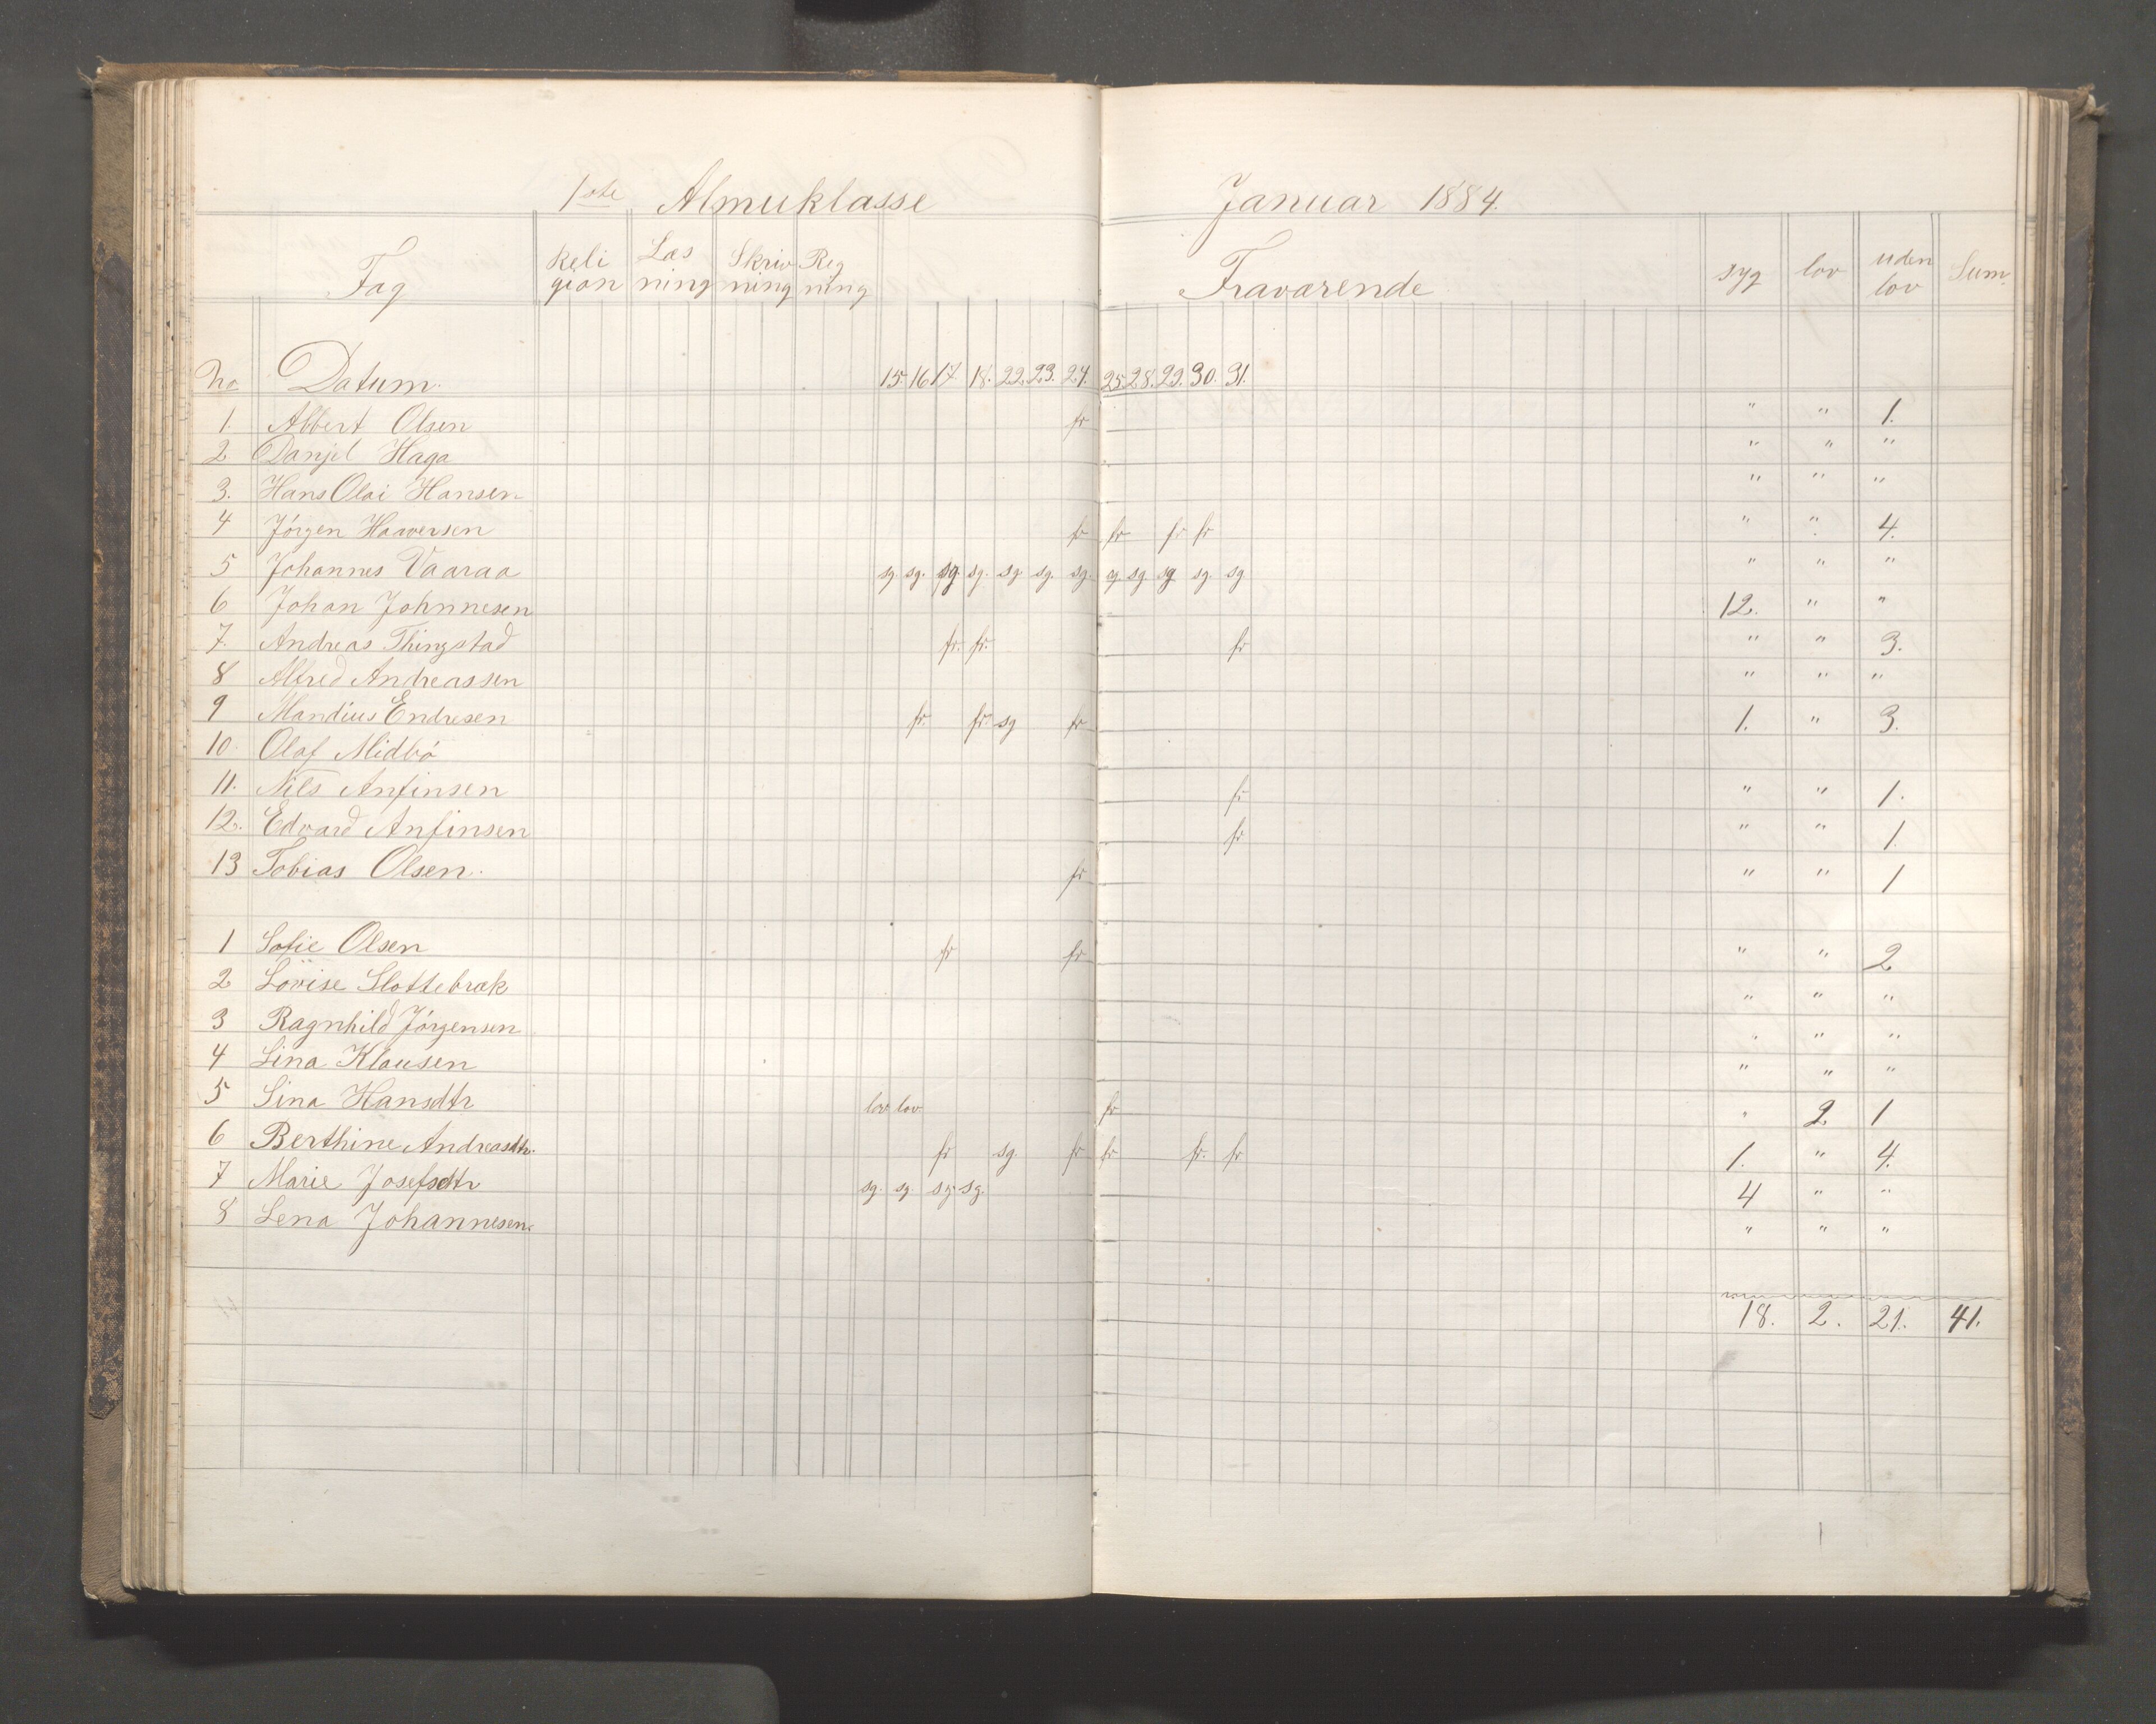 1ste Almuklasse Januar 1884.
Fag Religion Læsning Skrivning Regning Fraværende syg lov uden lov Sum.
No Datum. 15. 16 17 18. 22. 23. 24. 25. 28. 29. 30. 31.
1. Albert Olsen fr " " 1.
2 Danjel Haga " " "
3. Hans Olai Hansen " " "
4 Jörgen Haversen fr fr fr fr " " 4.
5 Johannes Vaaraa sg. sg. sg. sg. sg sg. sg. sg. sg. sg sg. sg " " "
6 Johan Johnnesen 12. " "
7. Andreas Thingstad fr. fr. fr " " 3.
8 Alfred Andreassen " " "
9 Mandius Endresen fr. fr. sg fr 1. " 3.
10. Olaf Midbö
11. Nils Anfinsen fr " " 1.
12. Edvard Anfinsen fr " " 1.
13 Tobias Olsen. fr " " 1
1 Sofie Olsen fr fr " " 2
2 Lovise Slottebrak " " "
3 Ragnhild Jörgensen " " "
4 Lina Klausen " " "
5 Sina Hansdtr lov lov fr " 2 1
6 Berthine Andreasdtr. fr sg. fr fr fr. fr 1. " 4.
7 Marie Josefsdtr sg. sg. sg. sg. 4 " "
8 Lena Johannesen. " " "
18. 2. 21. 41.